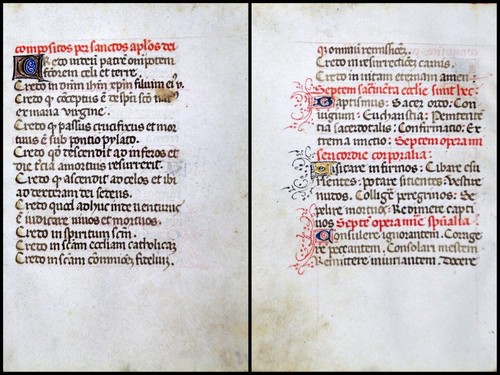 compositos per sanctos aplos dei
Credo in deū patrē om̄ipotem
factorem celi et terre
Credo in dnm ihm xpm filium ei9 v.
Credo qꝫ cōceptus ē de spū scō nat9
ex maria virgine
Credo qꝫ passus crucifixus et mor
tuus ē sub pontio pylato.
Credo qđ descendit ad inferos et
die tercia amortuis resurrerit.
Credo qꝫ ascendit ad celos et ibi
ad dexteram dei sedens.
Credo quod adhuc inde venturus
ē iudicare vivos et mortuos.
Credo in spiritum scm̄.
Credo in scām eccliam catholicaꝫ
Credo in scām cōmunioꝫ fidelium.
qꝫ omniū remissioeꝫ.
Credo in resurrectioeꝫ carnis.
Credo in vitam eternam amen:
Septem sacmēta ecclie sunt hec:
Baptismus: Sacer ordo: Con
iugium: Eucharistia: Penitentē
tia sacerdotalis: Confirmatio: Ex
trema unctio: Septem opera mi
sericordie corporalia:
Visitare infirmos: Cibare esu
rientes: potare sitientes: vestire
nudos. Collige peregrinos: Se
pelire mortuos: Redimere capti
vos Septē opera mīe spūalia
Consulere ignorantem: Corrige
re peccantem. Consolari mestem
Remittere iniuriantem. Docere